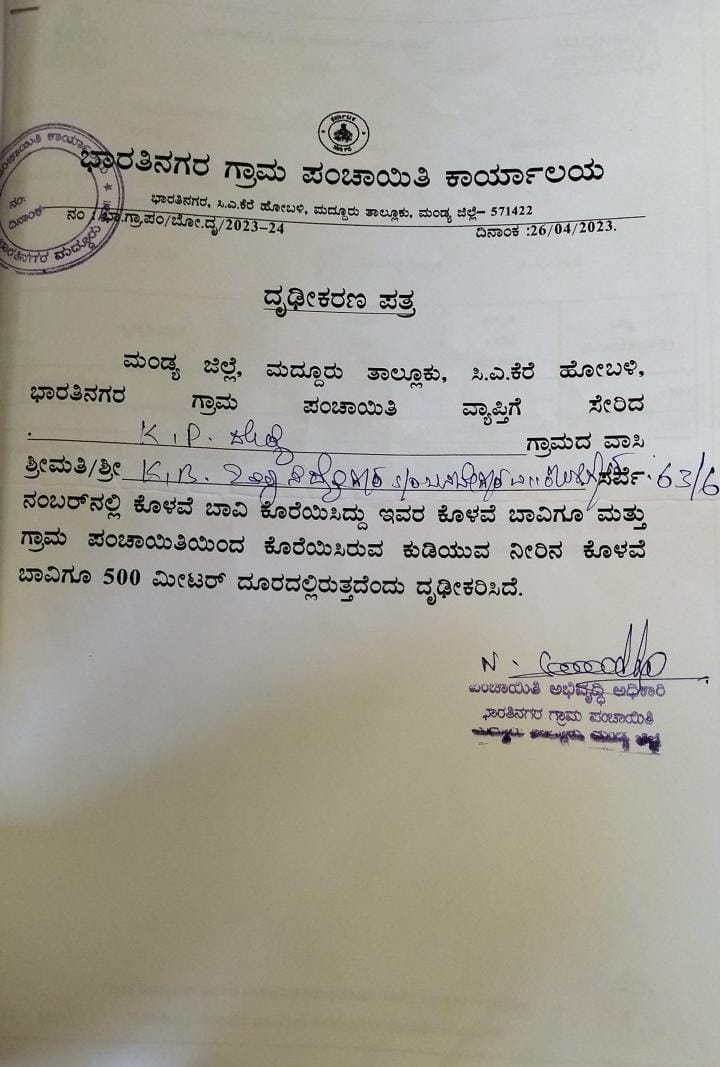 ಭಾರತಿನಗರ ಗ್ರಾಮ ಪಂಚಾಯಿತಿ ಕಾರ್ಯಾಲಯ
ಭಾರತಿನಗರ, ಸಿ.ಎ.ಕೆರೆ ಹೋಬಳಿ, ಮದ್ದೂರು ತಾಲ್ಲೂಕು, ಮಂಡ್ಯ ಜಿಲ್ಲೆ- 571422
ನಂ : ಭಾ.ಗ್ರಾ.ಪಂ/ಬೋ.ದೃ/2023-24 ದಿನಾಂಕ :26/04/2023.
ದೃಢೀಕರಣ ಪತ್ರ
ಮಂಡ್ಯ ಜಿಲ್ಲೆ, ಮದ್ದೂರು ತಾಲ್ಲೂಕು, ಸಿ.ಎ.ಕೆರೆ ಹೋಬಳಿ,
ಭಾರತಿನಗರ ಗ್ರಾಮ ಪಂಚಾಯಿತಿ ವ್ಯಾಪ್ತಿಗೆ ಸೇರಿದ
K.P. ಗ್ರಾಮದ ವಾಸಿ
ಶ್ರೀಮತಿ/ಶ್ರೀ K.B. ಸರ್ವೆ 63/6
ನಂಬರ್‌ನಲ್ಲಿ ಕೊಳವೆ ಬಾವಿ ಕೊರೆಯಿಸಿದ್ದು ಇವರ ಕೊಳವೆ ಬಾವಿಗೂ ಮತ್ತು
ಗ್ರಾಮ ಪಂಚಾಯಿತಿಯಿಂದ ಕೊರೆಯಿಸಿರುವ ಕುಡಿಯುವ ನೀರಿನ ಕೊಳವೆ
ಬಾವಿಗೂ 500 ಮೀಟರ್ ದೂರದಲ್ಲಿರುತ್ತದೆಂದು ದೃಢೀಕರಿಸಿದೆ.
N.
ಪಂಚಾಯಿತಿ ಅಭಿವೃದ್ಧಿ ಅಧಿಕಾರಿ
ಭಾರತಿನಗರ ಗ್ರಾಮ ಪಂಚಾಯಿತಿ